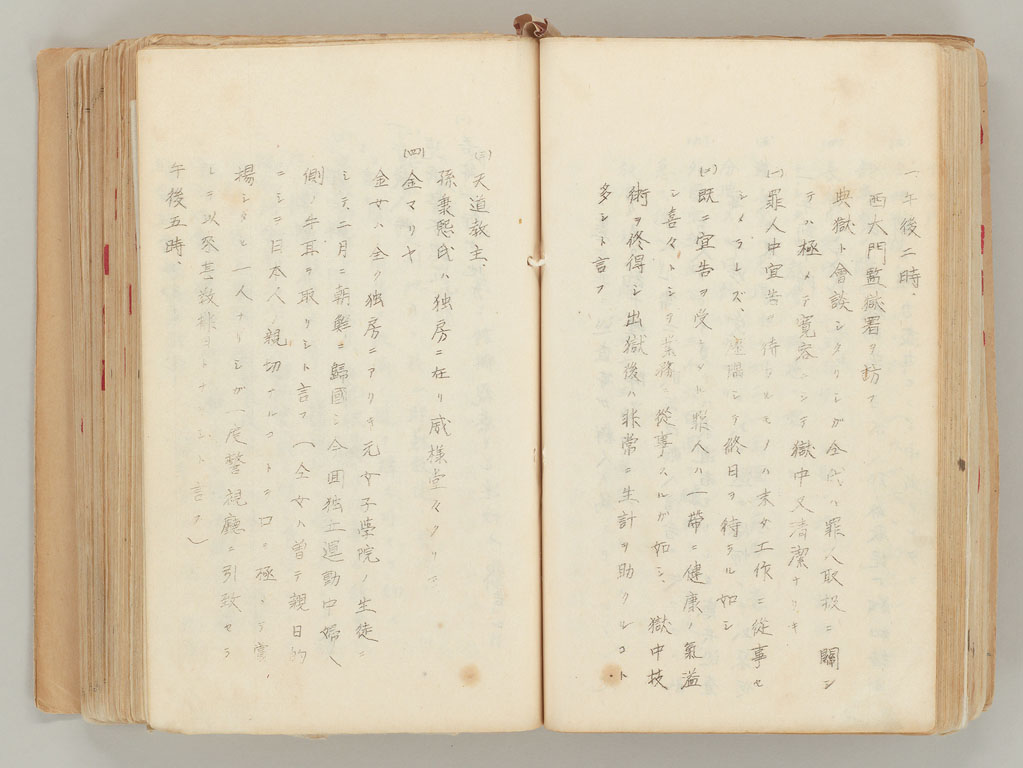 一、午後二時、
西大門監獄署ヲ訪フ
典獄ト會談シタリシガ全氏ハ罪人取扱ニ關シ
テハ極メテ寛容ニシテ獄中又清潔ナリキ
(一)罪人中宣告ヲ待ちルモノハ未ダ工作ニ從事セ
シメラレズ、シテ終日ヲ待ツル如シ
(二)既ニ宣告ヲ受ケタル罪人ハ一帯ニ健康ノ氣溢
シ喜々トシテ業務ニ從事スルガ如シ、獄中技
術ヲ修得シ出獄後ハ非常ニ生計ヲ助クルコト
多シト言フ
(三)天道教主、
孫秉熙氏ハ独房ニ在リ威様堂々タリ
(四)金マリヤ
金女ハ全ク独房ニアリキ元女子學院ノ生徒ニ
シテ二月ニ朝鮮ニ歸國シ今回独立運動中婦人
側ノ牛耳ヲ取リシト言フ(全女ハ曽テ親日的
ニシテ日本人ノ親切ナルコトヲ口ヲ極メテ賞
揚シタル一人ナリシガ一度警視廳ニ引致セラ
レテ以来甚敷排日トナリシト言フ)
午後五時、